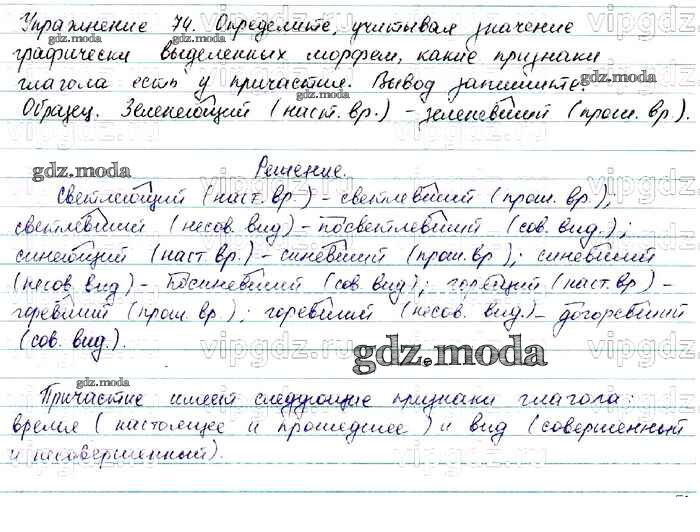 Упражнение 74. Определите, учитывая значение
графически выделенных морфем, какие признаки
глагола есть у причастия. Вывод запишите.
Образец. Зеленеющий (наст. вр.) – зеленевший (прош. вр.).
Решение.
Светлеющий (наст. вр.) – светлевший (прош. вр.);
светлевший (несов. вид) – посветлевший (сов. вид.);
синеющий (наст вр.) – синевший (прош. вр); синевший
(несов. вид) – посиневший (сов. вид); горящий (наст. вр) –
горевший (прош. вр); горевший (несов. вид) – догоревший
(сов. вид.).
Причастие имеет следующие признаки глагола:
время (настоящее и прошедшее) и вид (совершенный
и несовершенный).
gdz.moda
gdz.moda
gdz.moda
gdz.moda
gdz.moda
gdz.moda
gdz.moda
gdz.moda
vipgdz.ru